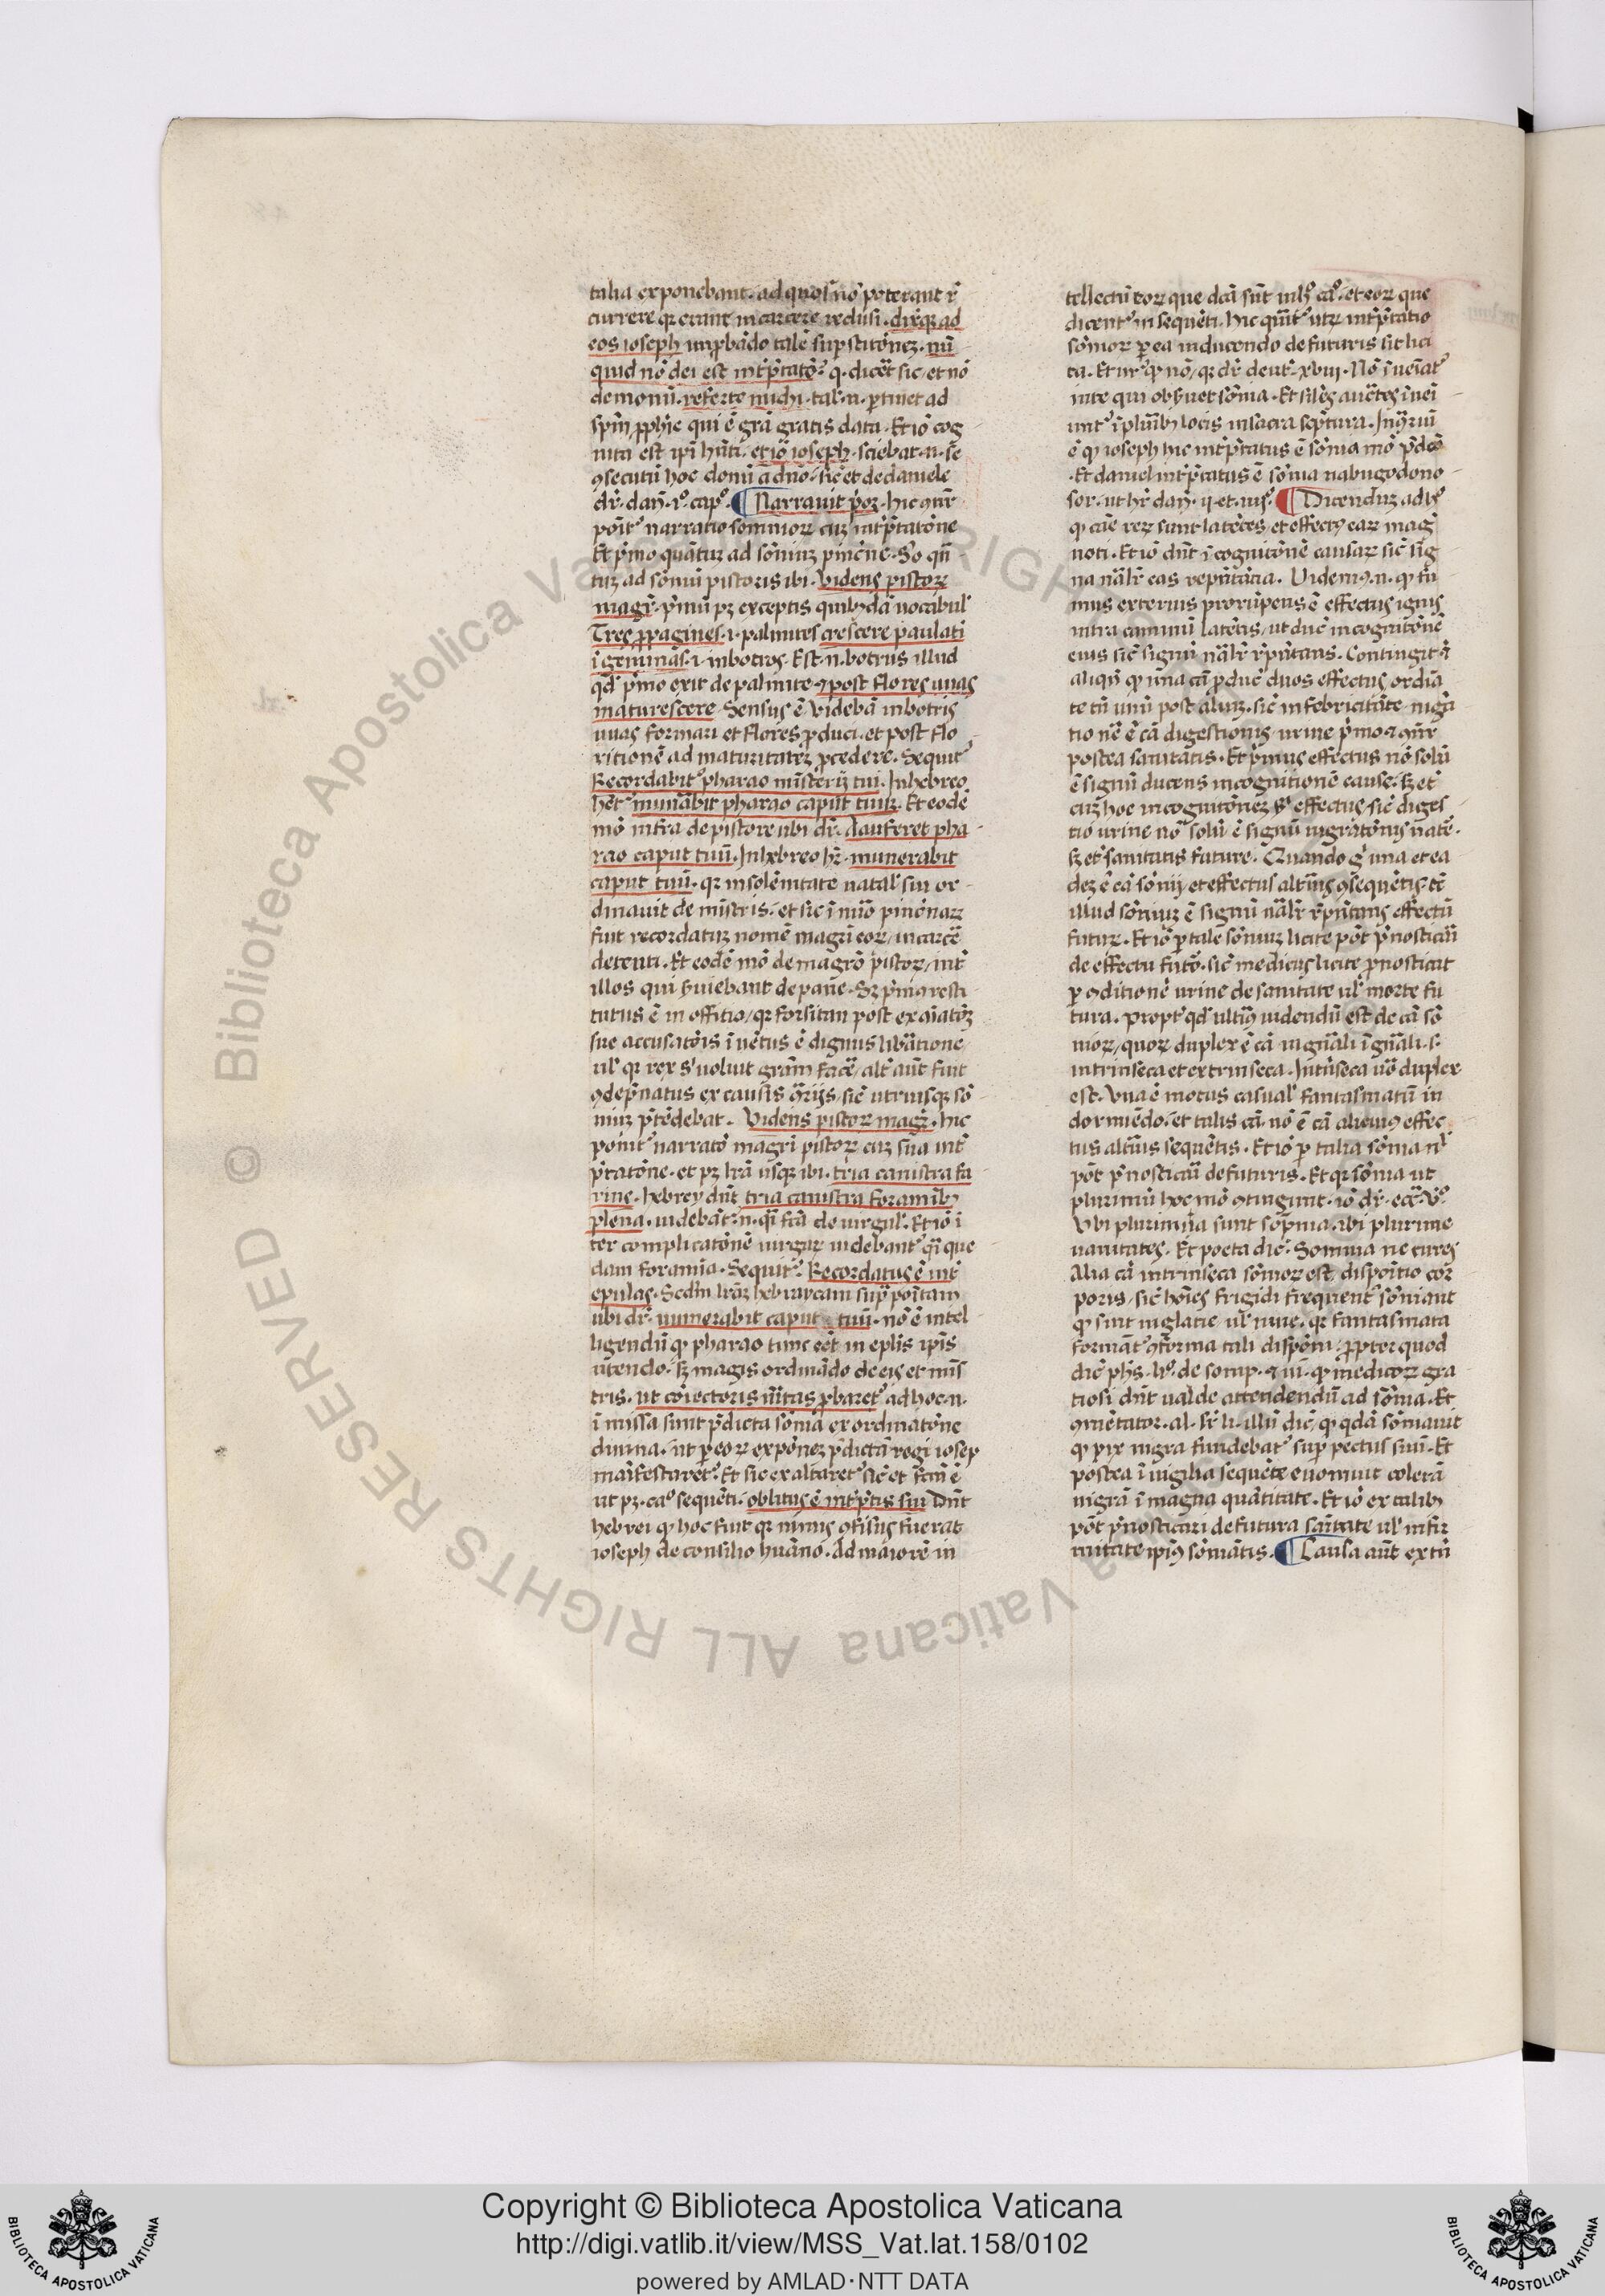 talia exponebant. ad quos nō poterant r̄
currere qr erant in carcere reclusi. dixitqz ad
eos ioseph inprobādo talē supstitōnez. nū
quid nō dei est int̄p̄tatō? q. dic̄et sic, et nō
demonū. referte michi. tal'. n. ptinet ad
spm̄ pphīe qui ē grā gratis data. Et iō cog
nita est ipi hūti. et iō ioseph. sciebat. n. se
ꝯsecutū hoc donū a dno. sic et de daniele
dr̄. dan̄. i°. cap°. ¶ Narrauit p̄oz. hic ꝯn̄r
ponit' narratio somniorꝝ cuz int̄p̄tatōne
Et p̄mo quātuz ad sōniuz pincn̄e. S'o qn̄
tuz ad sōniū pistoris ibi. Videns pistorꝝ
magr̄. p̄mū pꝫ exceptis quibꝫdā uocabul'
Tres ppagines. i. palmites crescere paulati
ī gemmas. i. in botros. Est. n. botrus illud
qd' p̄mo exit de palmite. ⁊ post flores uuas
maturescere. Sensus ē. Videbā in botris
uuas formari et flores pduci. et post flo
ritionē ad maturitatez pcedere. Sequit'
Recordabit' pharao mīsterij tui. In hebreo
het' numābit pharao caput tuuz. Et eodē
mō infra de pistore ubi dr̄. Auferet pha
rao caput tuū. In hebreo hr̄. munerabit
caput tuū. qr in solēnitate natal' sui or
dinauit de mīstris. et sic ī nūo pincn̄arꝝ
fuit recordatuz nomē magrī eorꝝ, in carcē
detenti. Et eodē mō de magrō pistorꝝ, int̄
illos qui s̄uiebant de pane. Sꝫ p̄ma resti
tutus ē in offitio, qr forsitan post exaīatōꝫ
sue accusatōis īuētus ē dignus libātione,
ul' qr rex s' uoluit grām facē, alt' aūt fuit
ꝯdēpnatus ex causis ꝯr̄ijs, sic utriusqꝫ sō
niuz p̄tēdebat. Videns pistorꝝ magr̄. hic
ponit' narratō magrī pistorꝝ cuz sua int̄
p̄tatōne. et pꝫ lr̄a usqꝫ ibi. tria canistra fa
rine. hebrey dn̄t tria canistra foramībꝫ
plena. uidebāt'. n. qī fcā de uirgul'. Et iō ī
ter complicatōnē uirgaꝝ uidebant' qī que
dam foramīa. Sequit'. Recordatus ē int̄
epulas. Scdm lrāꝫ hebraycam sup̄ poītam
ubi dr̄. numerabit caput tuū. nō ē intel
ligendū qꝫ pharao tunc eēt in eplis ipīs
utendo. sꝫ magis ordinādo de eis et mīs
tris. ut coiectoris ūitas pbaret'. ad hoc. n.
ī missa sunt p̄dicta sōnia ex ordinatōne
diuina. ut p eorꝝ expōnez p̄dictā regi iosep
maīfestaret'. Et sic exaltaret' sic et fcm̄ ē
ut pꝫ. ca° sequēti. oblitus ē int̄p̄tis sui Dn̄t
hebrei qꝫ hoc fuit qr nimis ꝯfisus fuerat
ioseph de consilio huāno. Ad maiorē in
tellectū eorꝝ que dcā sūt in h° ca°. et eorꝝ que
dicent' in sequēti. hic querit' utrꝫ int̄p̄tatio
sōniorꝝ p ea inducendo de futuris sit lici
ta. Et ur̄ qꝫ nō, qr dr̄ deut̄. xviii. Nō īueīat'
in te qui obs̄uet sōnia. Et sil'es auctes īueī
unt' ī plurībꝫ locis in sacra scptura. In ꝯr̄iū
ē qꝫ ioseph hic int̄p̄tatus ē sōnia mō p̄dcō
. Et daniel int̄p̄tatus ē sōnia nabugodono
sor. ut hr̄ dan̄. ij. et. iiij°. ¶ Dicenduz ad h°
qꝫ cāe rerꝝ sunt latētes. et effectꝯ earꝝ maḡ
noti. Et iō dn̄t ī cognitōnē causarꝝ sic sig
na nālr̄ eas rep̄ntātia. Videmꝯ. n. qꝫ fu
mus exterius prorūpens ē effectus ignis
intra caminū latētis, ut duc̄ in cognitōnē
eius sic signū nālr̄ rp̄ntans. Contingit. n̄
aliqn̄ qꝫ una cā pduc̄ duos effectus ordīa
te tn̄ unū post aliuz. sic in febricitāte. nig̃
tio nē ē cā digestionis urine p̄mo. ⁊ ꝯn̄r
postea sanitatis. Et p̄mus effectus nō solū
ē signū ducens in cognitionē cause. sꝫ et
cuz hoc in cognitōnez s' effectus. sic diges
tio urine nō solū ē signū nigratōnis nate.
sꝫ et sanitatis future. Quando g° una et ea
dez ē cā sōnij, et effectus alt̄ius ꝯsequētis. tc̄
illud sōniuz ē signū nālr̄ rp̄ntans effectū
futurꝫ. Et iō p tale sōniuz licite pōt p̄nosticāī
de effectu futō. sic medicus licite pnosticat
p ꝯditionē urine de sanitate ul' morte fu
tura. Propt' qd' ultīꝯ uidendū est de cā sō
niorꝝ, quorꝝ duplex ē cā in gn̄ali ī gn̄ali. s.
intrinseca et extrinseca. Int̄seca uō duplex
est. Vna ē motus casual' fantasmatū in
dormiēdo. et talis cā. nō ē cā alicuiꝯ effec
tus alt̄ius sequētis. Et iō p talia sōnia nl'
pōt p̄nosticāī de futuris. Et qr sōnia ut
plurimū hoc mō ꝯtingunt. iō dr̄. ecc̄. v°.
Vbi plurimīa sunt sōpnia. ibi plurime
uanitates. Et poeta dic̄. Somnia ne cures
Alia cā intrinseca sōniorꝝ est, dispositio cor
poris, sic hōīes frigidi frequent' sōniant
qꝫ sint in glacie, ul' niue. qr fantasmata
formāt' ꝯforma tali dispōni. ppter quod
dic̄ phs̄. h°. de somp. ⁊ ui. qꝫ medicorꝝ gra
tiosi dn̄t ualde attendendū ad sōnia. Et
ꝯmētator. al. sr̄ li. illū dic̄, qꝫ qdā sōniauit
qꝫ pix nigra fundebat' sup pectus suū. Et
postea ī uigilia sequēte euomuit colerā
nigrā ī magna quātitate. Et iō ex talibꝫ
pōt p̄nosticari de futura sanitate ul' infir
mitate ipīꝯ sōniātis. ¶ Causa aūt extn̄
Copyright © Biblioteca Apostolica Vaticana
http://digi.vatlib.it/view/MSS_Vat.lat.158/0102
powered by AMLAD·NTT DATA
BIBLIOTECA APOSTOLICA VATICANA
BIBLIOTECA APOSTOLICA VATICANA
© Biblioteca Apostolica Vaticana ALL RIGHTS RESERVED